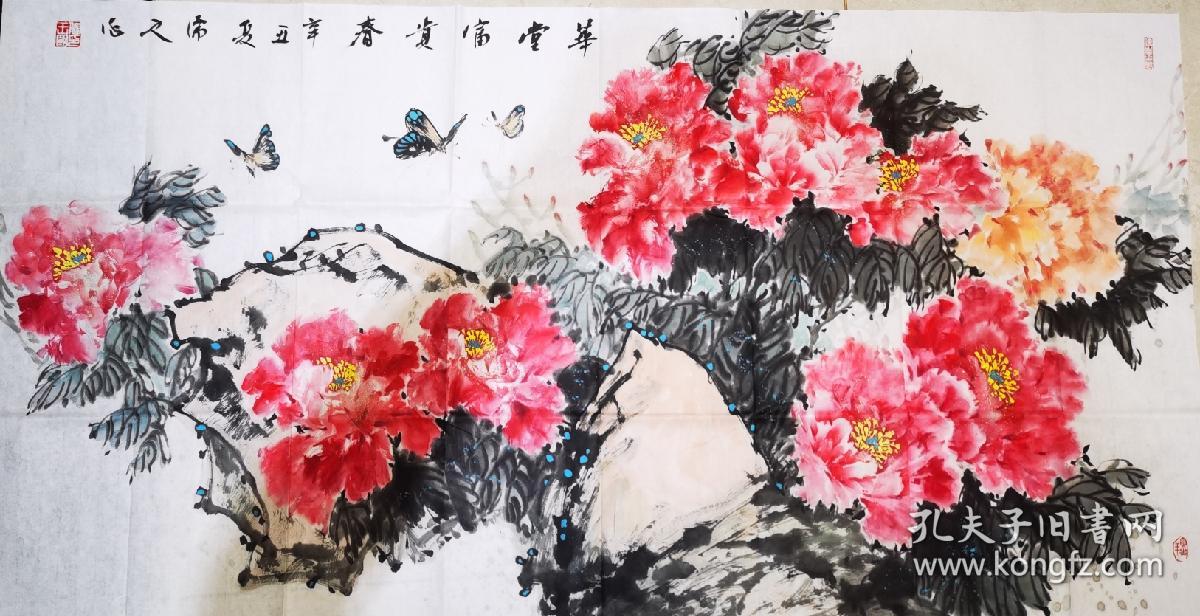 華堂富貴春辛丑夏濡又作
孔夫子旧書网
www.kongfz.com